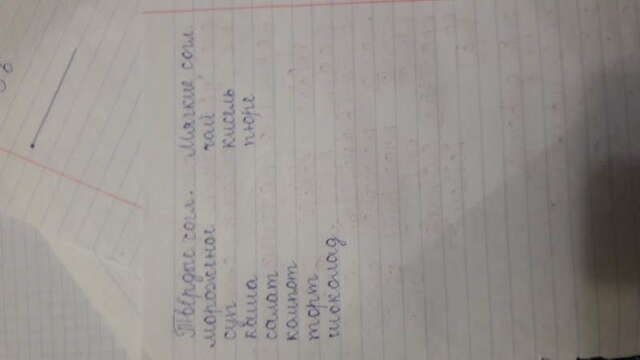 Твёрдые согл. Мягкие согл
мороженое чай
суп кисель
каша пюре
салат
компот
торт
шоколад